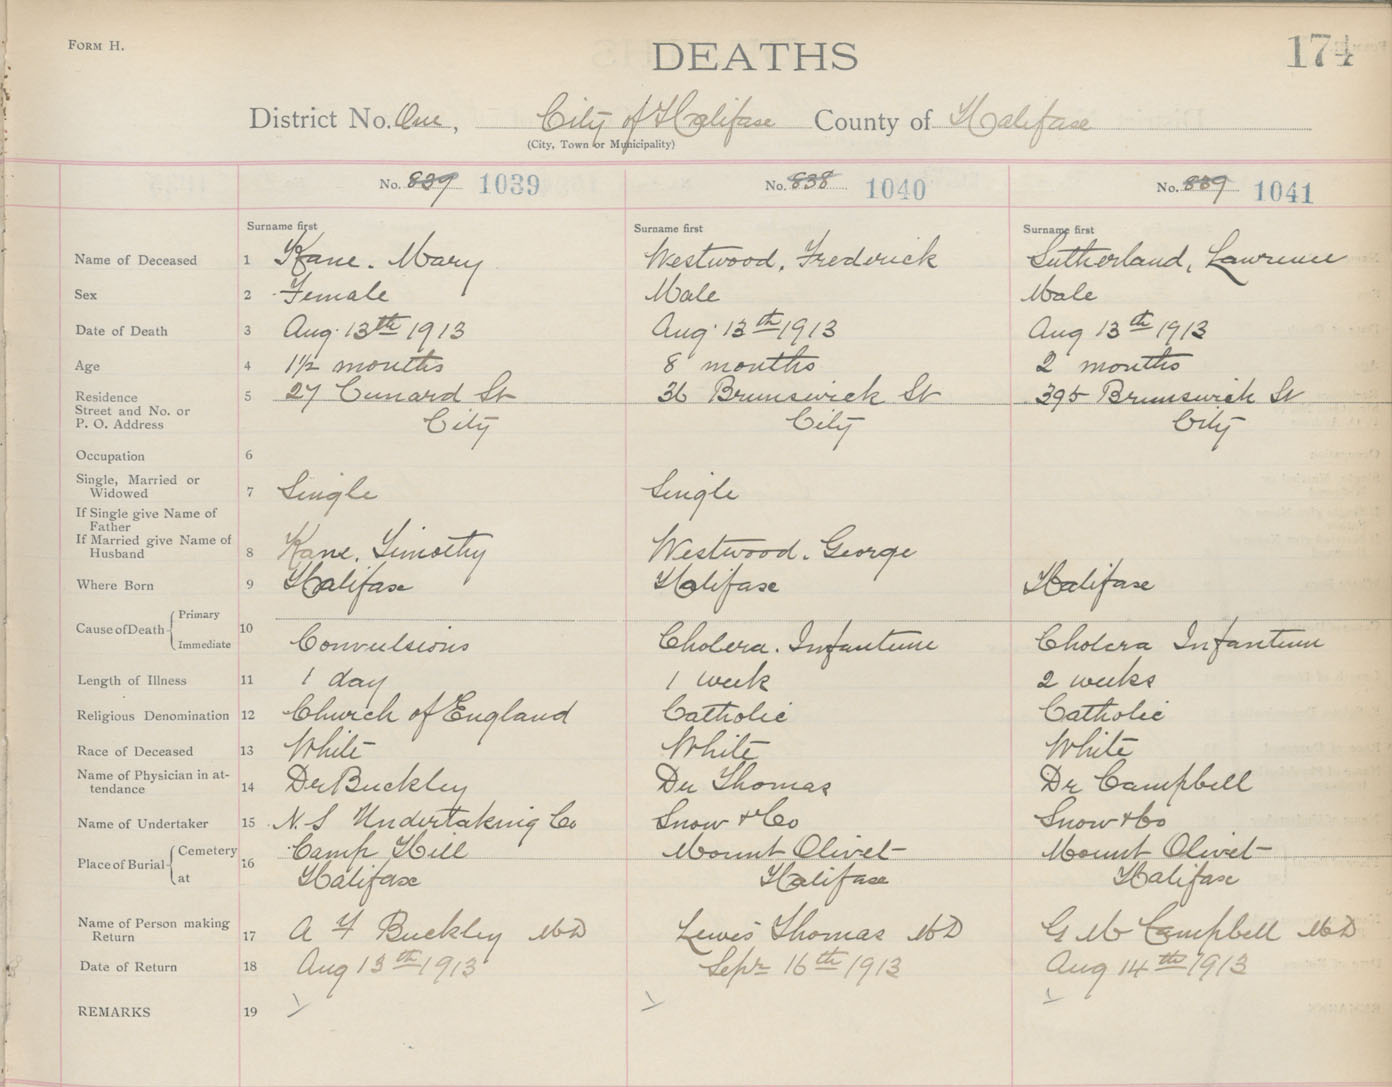 FORM H.
DEATHS
174
District No. One, City of Halifax County of Halifax
(City, Town or Municipality)
No. 839 1039 No. 838 1040 No. 839 1041
Surname first Surname first Surname first
Name of Deceased 1 Kane. Mary Westwood, Frederick Sutherland, Lawrence
Sex 2 Female Male Male
Date of Death 3 Aug. 13th 1913 Aug. 13th 1913 Aug 13th 1913
Age 4 1½ months 8 months 2 months
Residence 5 27 Cunard St 36 Brunswick St 395 Brunswick St
Street and No. or
P. O. Address City City City
Occupation 6
Single, Married or
Widowed 7 Single Single
If Single give Name of
Father
If Married give Name of
Husband 8 Kane, Timothy Westwood. George
Where Born 9 Halifax Halifax Halifax
Cause of Death Primary 10
Immediate Convulsions Cholera. Infantum Cholera Infantum
Length of Illness 11 1 day 1 week 2 weeks
Religious Denomination 12 Church of England Catholic Catholic
Race of Deceased 13 White White White
Name of Physician in at-
tendance 14 Dr Buckley Dr Thomas Dr Campbell
Name of Undertaker 15 N. S Undertaking Co Snow & Co Snow & Co
Place of Burial Cemetery 16 Camp Hill Mount Olivet Mount Olivet
at Halifax Halifax Halifax
Name of Person making
Return 17 A F Buckley MD Lewis Thomas MD G M Campbell MD
Date of Return 18 Aug 13th 1913 Sepr 16th 1913 Aug 14th 1913
REMARKS 19